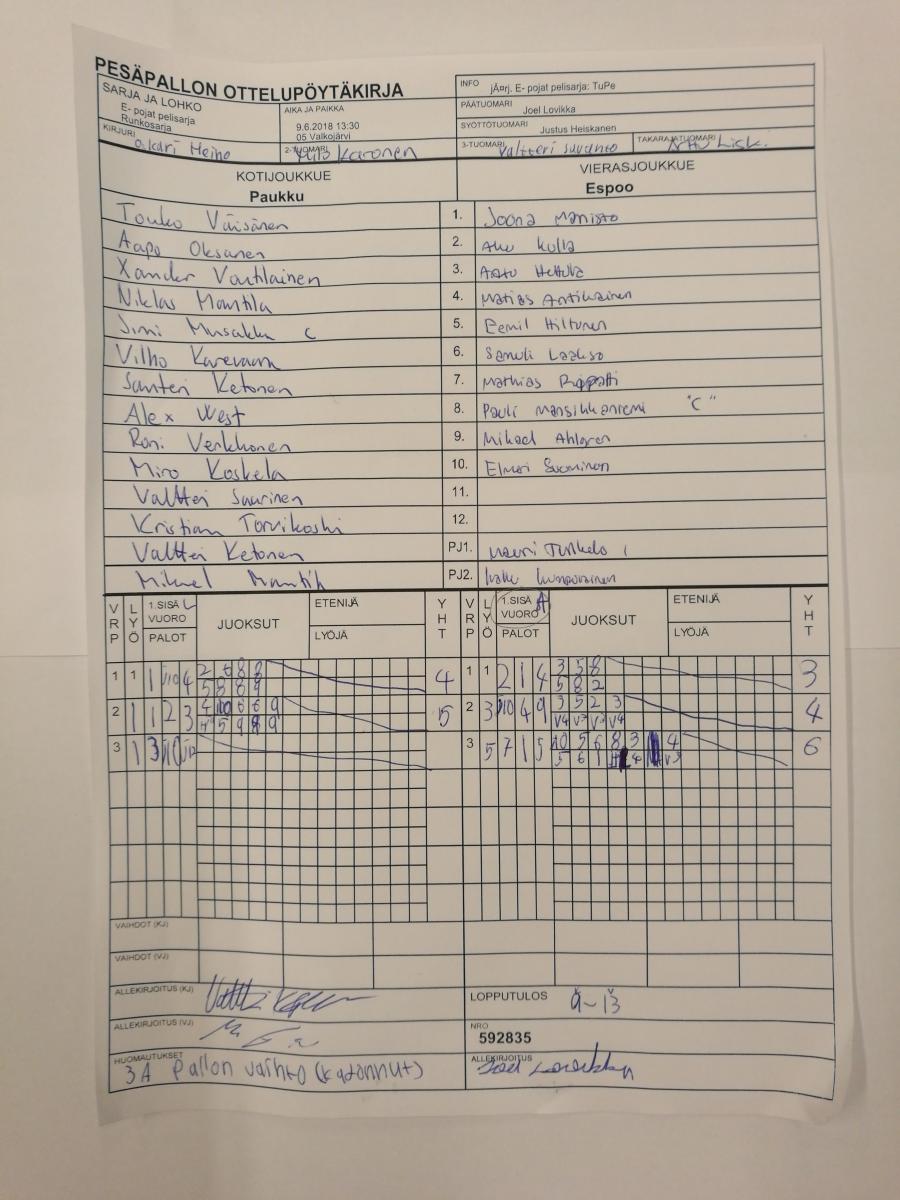 PESÄPALLON OTTELUPÖYTÄKIRJA
SARJA JA LOHKO
E- pojat pelisarja
Runkosarja
AIKA JA PAIKKA
9.6.2018 13:30
05 Valkojärvi
INFO jÄ¤rj. E- pojat pelisarja: TuPe
PÄÄTUOMARI Joel Lovikka
SYÖTTÖTUOMARI Justus Heiskanen
KIRJURI Okari Heino
2-TUOMARI Karonen
3-TUOMARI Valtteri Savanto
TAKARAJATUOMARI Arttu
KOTIJOUKKUE
Paukku
VIERASJOUKKUE
Espoo
Touko Väisänen 1. Joona Manisto
Aapo Oksanen 2. Aku Kulla
Xander Vontilainen 3. Aatu Hettula
Niklas Manttila 4. Matias Antikainen
Jimi Musakka C 5. Eemil Hiltunen
Vilho Karevaara 6. Samuli Laakso
Santeri Ketonen 7. Mathias
Alex West 8. Pauli Mansikkaniemi "C"
Roni Verkkonen 9. Mikael Ahlgren
Miro Koskela 10. Elmeri Suominen
Valtteri Saarinen 11.
Kristian Torvikoski 12.
Valtteri Ketonen PJ1. Mauri
Mikael PJ2.
VRP LYÖ 1.SISÄ VUORO PALOT JUOKSUT ETENIJÄ LYÖJÄ YHT
VRP LYÖ 1.SISÄ VUORO PALOT JUOKSUT ETENIJÄ LYÖJÄ YHT
1 1 1 4 4
1 1 2 1 4 3 5 8 3
5 8 2
2 1 1 2 3 5
2 3 4 9 3 5 2 3 4
3 1 3
3 5 7 1 5 10 5 6 8 3 4 6
VAIHDOT (KJ)
VAIHDOT (VJ)
ALLEKIRJOITUS (KJ)
LOPPUTULOS 9-13
ALLEKIRJOITUS (VJ)
NRO
592835
HUOMAUTUKSET
3A Pallon vaihto (kadonnut)
ALLEKIRJOITUS
Joel Lovikka